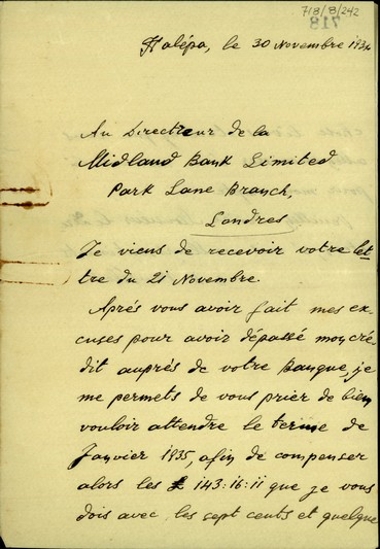 718/8/242
718
Halépa, le 30 Novembre 1934
Au Directeur de la
Midland Bank Limited
Park Lane Branch,
Londres
Je viens de recevoir votre let
tre du 21 Novembre.
Après vous avoir fait mes ex-
cuses pour avoir dépassé mon cré
dit auprès de votre Banque, je
me permets de vous prier de bien
vouloir attendre le terme de
Janvier 1935, afin de compenser
alors les £ 143:16:11 que je vous
dois avec les sept cents et quelque